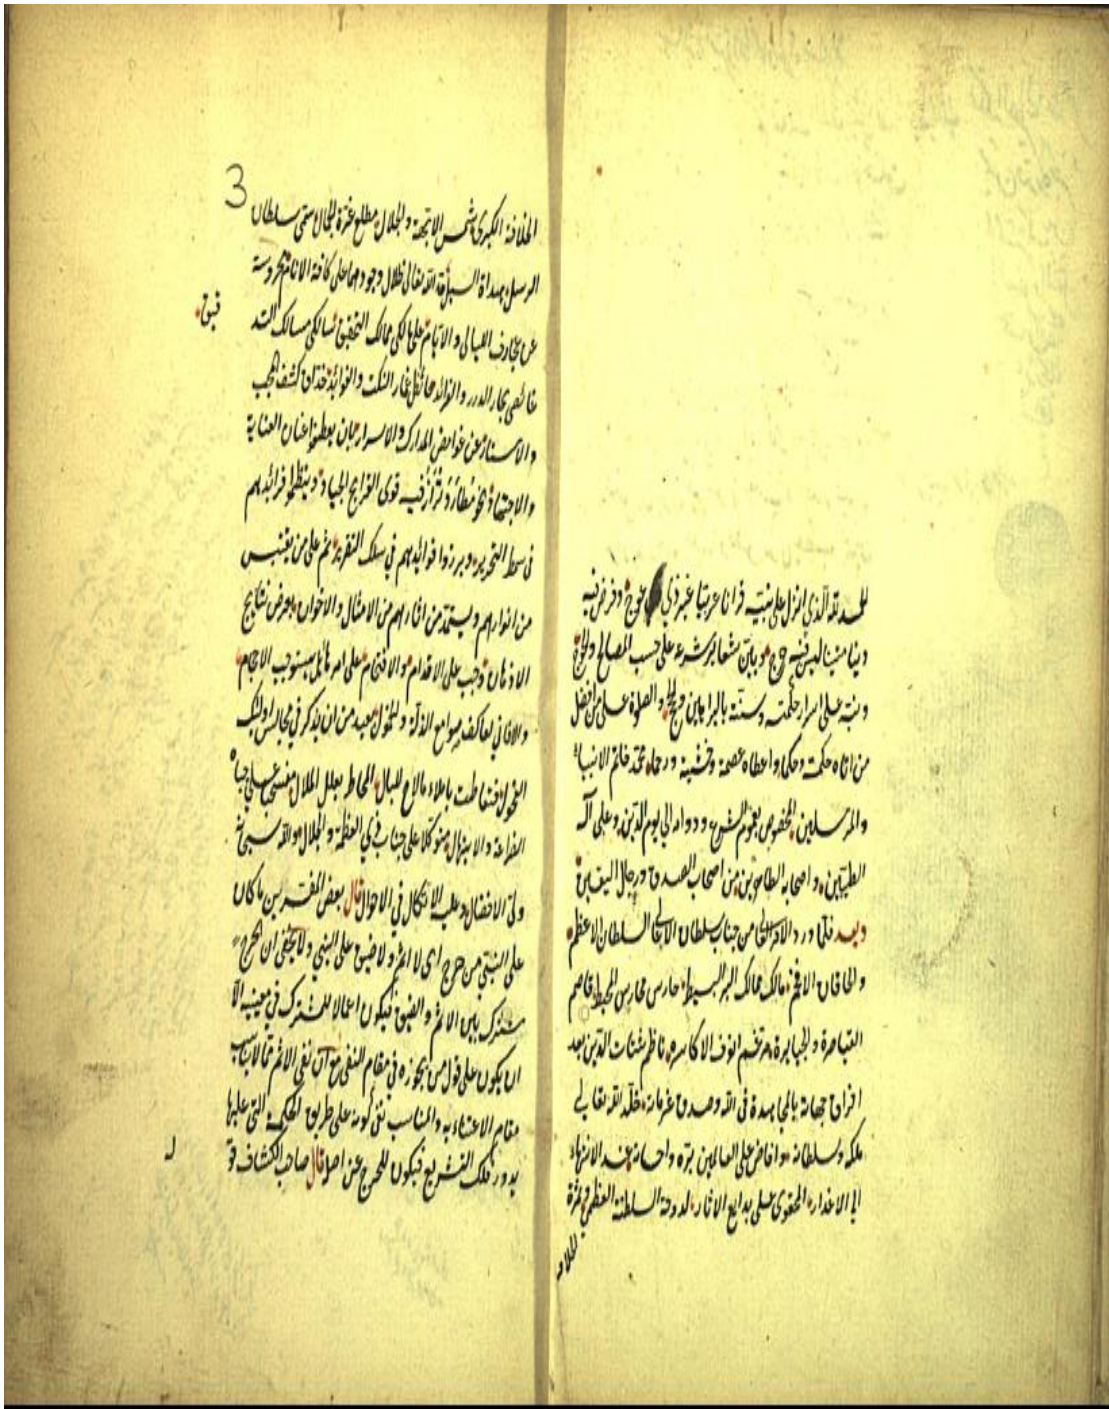 الحمد لله الذي انزل على نبيه قرانا عربيا غير ذي عوج وفرض فيه
دينا مبينا ليس فيه حرج وبين شعاير شرعه على حسب المصالح
ونبه على اسرار حكمته وسنته بالبراهين والصلوة على من افضل
من اتاه حكمة وحكما واعطاه عصمة وخشية ورحما محمد خاتم الانبياء
والمرسلين المخصوص بعموم الشرع ودوامه الى يوم الدين وعلى آله
الطيبين واصحابه الطاهرين من اصحاب الصدق ورجال اليقين
وبعد فلما ورد الامر من جناب سلطان السلطان الاعظم
والخاقان الافخم مالك ممالك البر البسيط حارس محارس المحيط قاصم
القياصرة والجبابرة مرغم انوف الاكاسره ناظم شتات الدين بعد
افراق جهاته بالمجاهدة فى الله وصدق عزماته خلد الله تعالى
ملكه وسلطانه وافاض على العالمين بره واحسانه عند الانتهاء
الى المحتوى على بدايع الاثار لدوحة السلطنة العظمى وثمرة
الخلافة
3
الخلافة الكبرى شمس الابهة والجلال مطلع غرة الجمال سمى سلطان
الرسل بهداة السبل الله تعالى ظلال وجودهما على كافة الانام محروسة
عن الليالى والايام على مالكى ممالك التحقيق سالكى مسالك التد
قيق
غائصى بحار الدرر والفرائد النكت والفوائد حذاق كشف الحجب
والاستار عن غوامض المدارك والاسرار بان يعطفوا عنان العناية
والاجتهاد نحو فيه قوى القرايح الجياد وينظموا فرائدهم
فى سمط التحرير ويبرزوا فوائدهم في سلك التقرير ثم على من يقتبس
من انوارهم ويستمد من اثارهم من الامثال والاخوان بعرض نتايج
الاذهان وجب على الاقدام والاقتحام على امر يستوجب الاحجام
والافانى لعاكف صوامع الذلة والخمول بعيد من ان يذكر في مجالس اولئك
الفحول باملاء مالاح للبال المحاط بعلل الملال
الضراعة والابتهال متوكلا على جناب ذي العظمة والجلال والله سبحانه
ولى الافضال وعليه الاتكال في الاحوال قال بعض المفسرين ما كان
على النبي من حرج اى لا اثم ولا ضيق على النبي ولا يخفى ان الحرج
مشترك بين الاثم والضيق فيكون اعمالا للمشترك في معنييه الا
ان يكون على قول من يجوزه في مقام النفى مع ان نفى الاثم مما لا يناسب
مقام الاعتناء به والمناسب نفى كونه على طريق الحكمة التى عليها
يدور فلك التشريع فيكون للحرج عن اصر قال صاحب الكشاف